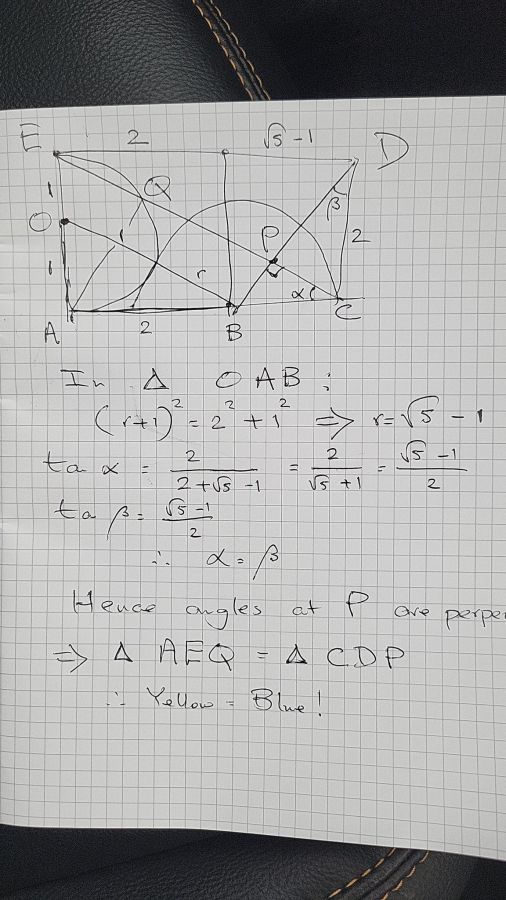 E 2 √5 - 1 D
1 Q β
O 1 P 2
1 r α
A 2 B C
In Δ OAB :
(r+1)² = 2² + 1² ⇒ r = √5 - 1
ta α = 2 / (2 + √5 - 1) = 2 / (√5 + 1) = (√5 - 1) / 2
ta β = (√5 - 1) / 2
∴ α = β
Hence angles at P are perpe
⇒ Δ AEQ = Δ CDP
∴ Yellow = Blue!